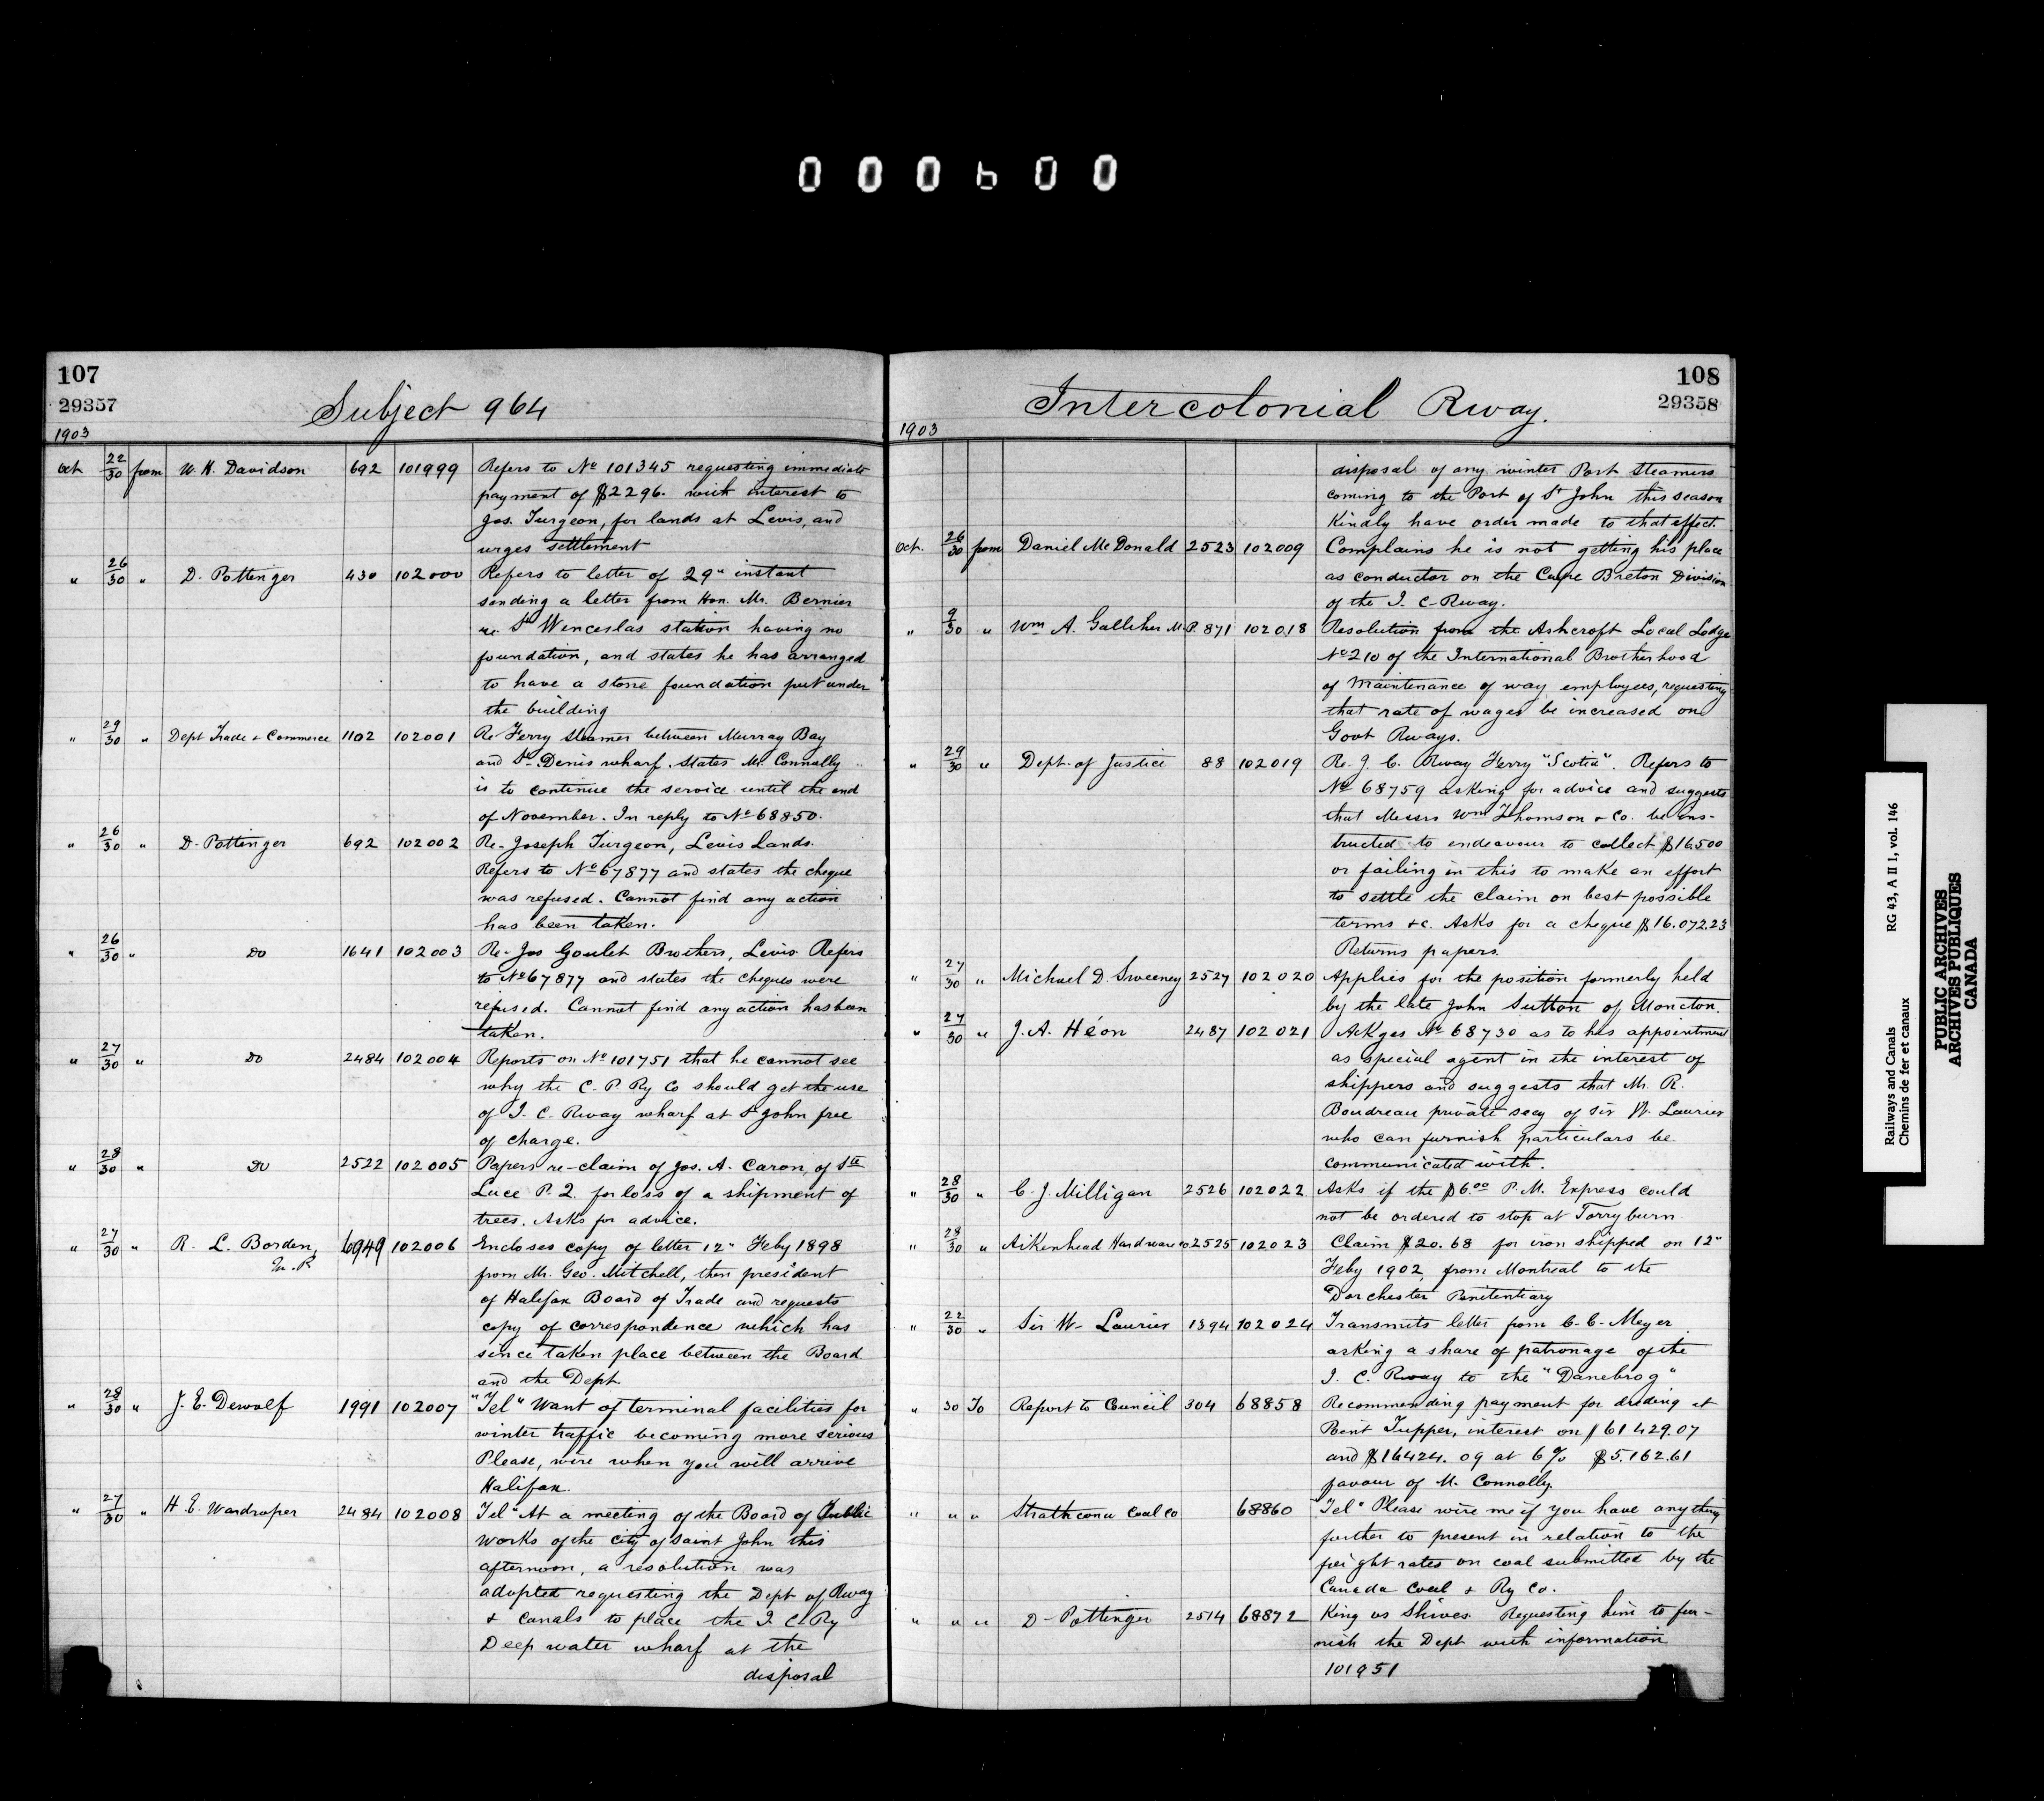 000600
107
29357
Subject 964
1903
Oct 22/30 from W. H. Davidson 692 101999 Refers to No 101345 requesting immediate
payment of $2296. with interest to
Jos. Turgeon, for lands at Levis, and
urges settlement
" 26/30 " D. Pottinger 430 102000 Refers to letter of 29" instant
sending a letter from Hon. Mr. Bernier
re. St Wenceslas station having no
foundation, and states he has arranged
to have a stone foundation put under
the building
" 29/30 " Dept Trade & Commerce 1102 102001 Re Ferry steamer between Murray Bay
and St. Denis wharf. States Mr. Connolly
is to continue the service until the end
of November. In reply to No 68850.
" 26/30 " D. Pottinger 692 102002 Re- Joseph Turgeon, Levis Lands.
Refers to No 67877 and states the cheque
was refused. Cannot find any action
has been taken.
" 26/30 " Do 1641 102003 Re- Jos Goulet Brothers, Levis Refers
to No 67877 and states the cheques were
refused. Cannot find any action has been
taken.
" 27/30 " Do 2484 102004 Reports on No 101751 that he cannot see
why the C. P. Ry Co should get the use
of I. C. Rway wharf at St John free
of charge.
" 28/30 " Do 2522 102005 Papers re-claim of Jos. A. Caron, of Ste
Luce P. Q. for loss of a shipment of
trees. Asks for advice.
" 27/30 " R. L. Borden, 6949 102006 Encloses copy of letter 12" Feby 1898
M.P.
from Mr. Geo. Mitchell, then president
of Halifax Board of Trade and requests
copy of correspondence which has
since taken place between the Board
and the Dept
" 28/30 " J. E. Dewolf 1991 102007 "Tel" Want of terminal facilities for
winter traffic becoming more serious
Please, wire when you will arrive
Halifax.
" 27/30 " H. E. Wardroper 2484 102008 Tel" At a meeting of the Board of Public
works of the city of Saint John this
afternoon, a resolution was
adopted requesting the Dept of Rway
& Canals to place the I. C. Ry
Deep water wharf at the
disposal
108
29358
Intercolonial Rway.
1903
disposal of any winter Port Steamers
coming to the Port of St John this season
Kindly have order made to that effect.
Oct. 26/30 from Daniel McDonald 2523 102009 Complains he is not getting his place
as conductor on the Cape Breton Division
of the I. C. Rway.
" 9/30 " Wm A. Galliher M.P. 871 102018 Resolution from the Ashcroft Local Lodge
No 210 of the International Brotherhood
of Maintenance of way employees, requesting
that rate of wages be increased on
Govt Rways.
" 29/30 " Dept. of Justice 88 102019 Re. I. C. Rway Ferry "Scotia". Refers to
No 68759 asking for advice and suggests
that Messrs Wm Thomson & Co. be ins-
tructed to endeavour to collect $16500
or failing in this to make an effort
to settle the claim on best possible
terms &c. Asks for a cheque $16.072.23
Returns papers.
" 27/30 " Michael D. Sweeney 2527 102020 Applies for the position formerly held
by the late John Sutton of Moncton.
" 27/30 " J. A. Héon 2487 102021 Ackges No 68730 as to his appointment
as special agent in the interest of
shippers and suggests that Mr. R.
Boudreau private secy of Sir W. Laurier
who can furnish particulars be
communicated with.
" 28/30 " C. J. Milligan 2526 102022 Asks if the $6.00 P.M. Express could
not be ordered to stop at Torryburn
" 28/30 " Aikenhead Hardware Co 2525 102023 Claim $20.68 for iron shipped on 12"
Feby 1902, from Montreal to the
Dorchester Penitentiary
" 22/30 " Sir W. Laurier 1394 102024 Transmits letter from C. C. Meyer
asking a share of patronage of the
I. C. Rway to the "Danebrog"
" 30 To Report to Council 304 68858 Recommending payment for dredging at
Point Tupper, interest on $61429.07
and $16424.09 at 6% $5.162.61
favour of M. Connolly.
" " " Strathcona Coal Co 68860 "Tel" Please wire me if you have anything
further to present in relation to the
freight rates on coal submitted by the
Canada Coal & Ry Co.
" " " D. Pottinger 2514 68872 King vs Shives Requesting him to fur-
nish the Dept with information
101951
Railways and Canals RG 43, A II 1, vol. 146
Chemins de fer et canaux
PUBLIC ARCHIVES
ARCHIVES PUBLIQUES
CANADA